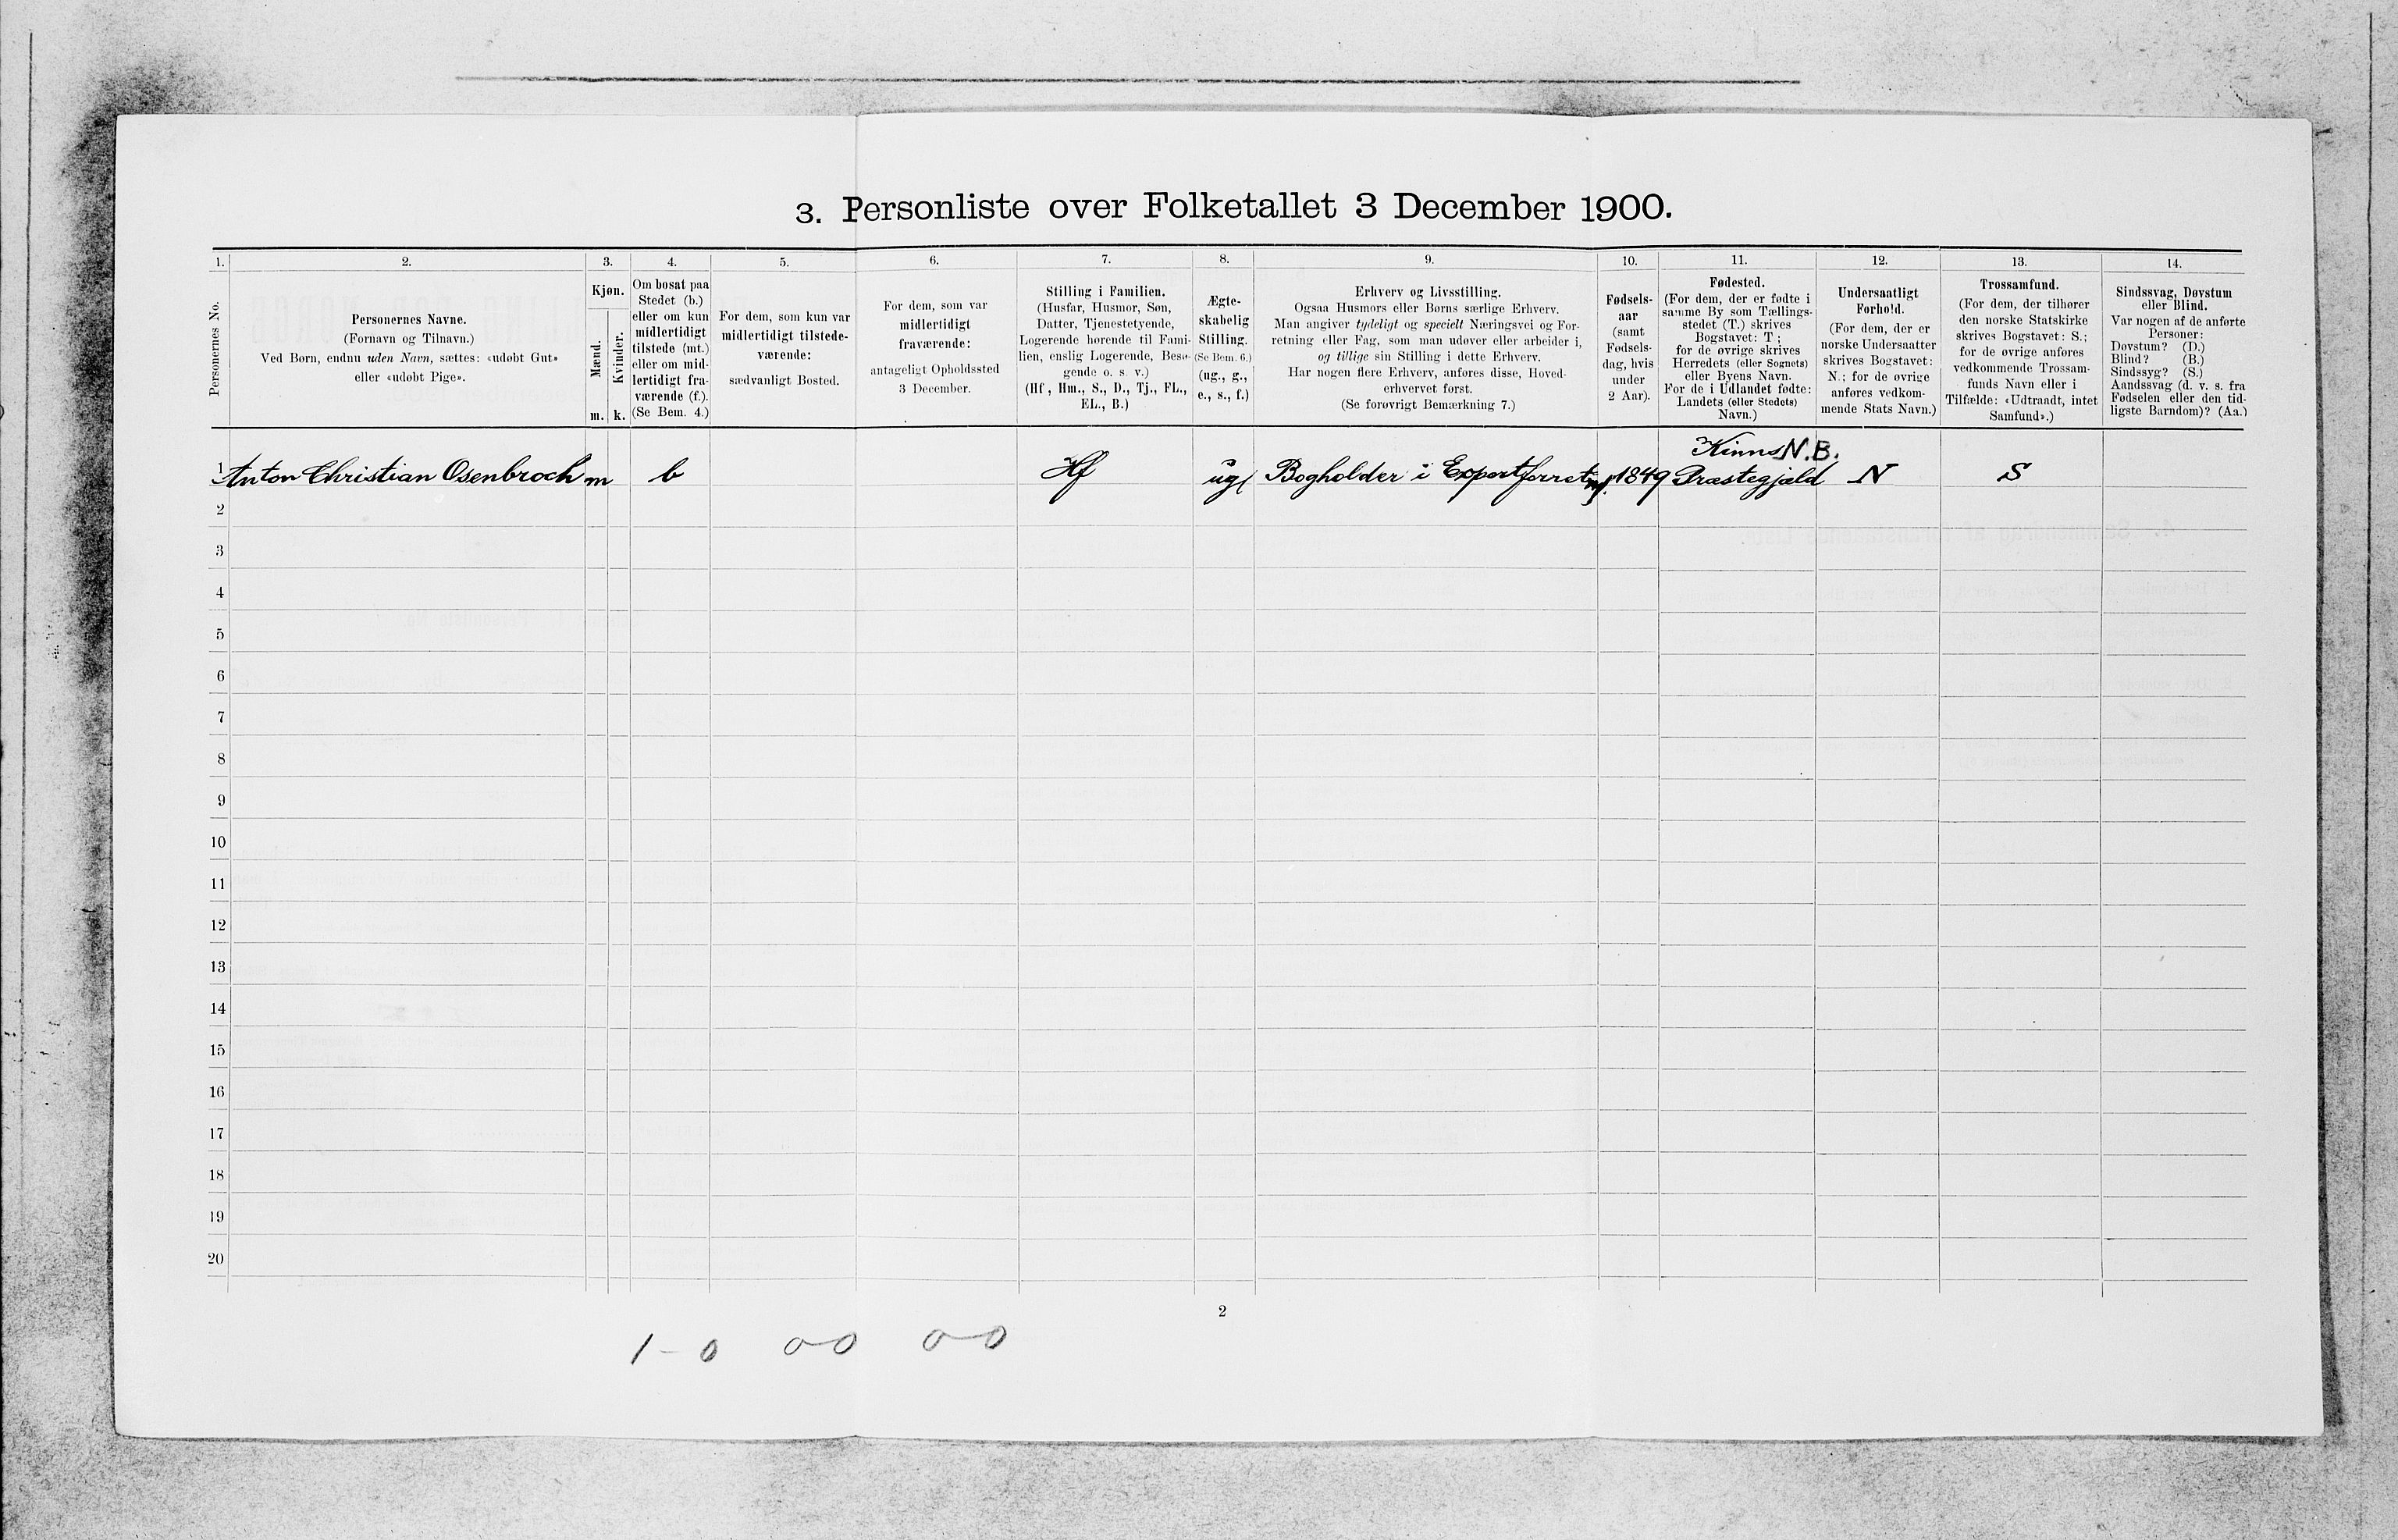 3. Personliste over Folketallet 3 December 1900.
1. 2. 3. 4. 5. 6. 7. 8. 9. 10. 11. 12. 13. 14.
Personernes No.
Personernes Navne.
(Fornavn og Tilnavn.)
Ved Børn, endnu uden Navn, sættes: «udøbt Gut»
eller «udøbt Pige».
Kjøn.
Mænd.
Kvinder.
m. k.
Om bosat paa
Stedet (b.)
eller om kun
midlertidigt
tilstede (mt.)
eller om mid-
lertidigt fra-
værende (f.).
(Se Bem. 4.)
For dem, som kun var
midlertidigt tilstede-
værende:
sædvanligt Bosted.
For dem, som var
midlertidigt
fraværende:
antageligt Opholdssted
3 December.
Stilling i Familien.
(Husfar, Husmor, Søn,
Datter, Tjenestetyende,
Logerende hørende til Fami-
lien, enslig Logerende, Besø-
gende o. s. v.)
(Hf., Hm., S., D., Tj., FL.,
EL., B.)
Ægte-
skabelig
Stilling.
(Se Bem. 6.)
(ug., g.,
e., s., f.)
Erhverv og Livsstilling.
Ogsaa Husmors eller Børns særlige Erhverv.
Man angiver tydeligt og specielt Næringsvei og For-
retning eller Fag, som man udøver eller arbeider i,
og tillige sin Stilling i dette Erhverv.
Har nogen flere Erhverv, anføres disse, Hoved-
erhvervet først.
(Se forøvrigt Bemærkning 7.)
Fødsels-
aar
(samt
Fødsels-
dag, hvis
under
2 Aar).
Fødested.
(For dem, der er fødte i
samme By som Tællings-
stedet (T.) skrives
Bogstavet: T.;
for de øvrige skrives
Herredets (eller Sognets)
eller Byens Navn.
For de i Udlandet fødte:
Landets (eller Stedets)
Navn.)
Undersaatligt
Forhold.
(For dem, der er
norske Undersaatter
skrives Bogstavet:
N.; for de øvrige
anføres vedkom-
mende Stats Navn.)
Trossamfund.
(For dem, der tilhører
den norske Statskirke
skrives Bogstavet: S.;
for de øvrige anføres
vedkommende Trossam-
funds Navn eller i
Tilfælde: «Udtraadt, intet
Samfund».)
Sindssvag, Døvstum
eller Blind.
Var nogen af de anførte
Personer:
Døvstum? (D.)
Blind? (B.)
Sindssyg? (S.)
Aandssvag (d. v. s. fra
Fødselen eller den tid-
ligste Barndom)? (Aa.)
Kinns N.B.
1 Anton Christian Osenbroch m b Hf ug Bogholder i Exportforretn. 1849 Præstegjæld N S
2
3
4
5
6
7
8
9
10
11
12
13
14
15
16
17
18
19
20
2
1-0 0-0 0-0